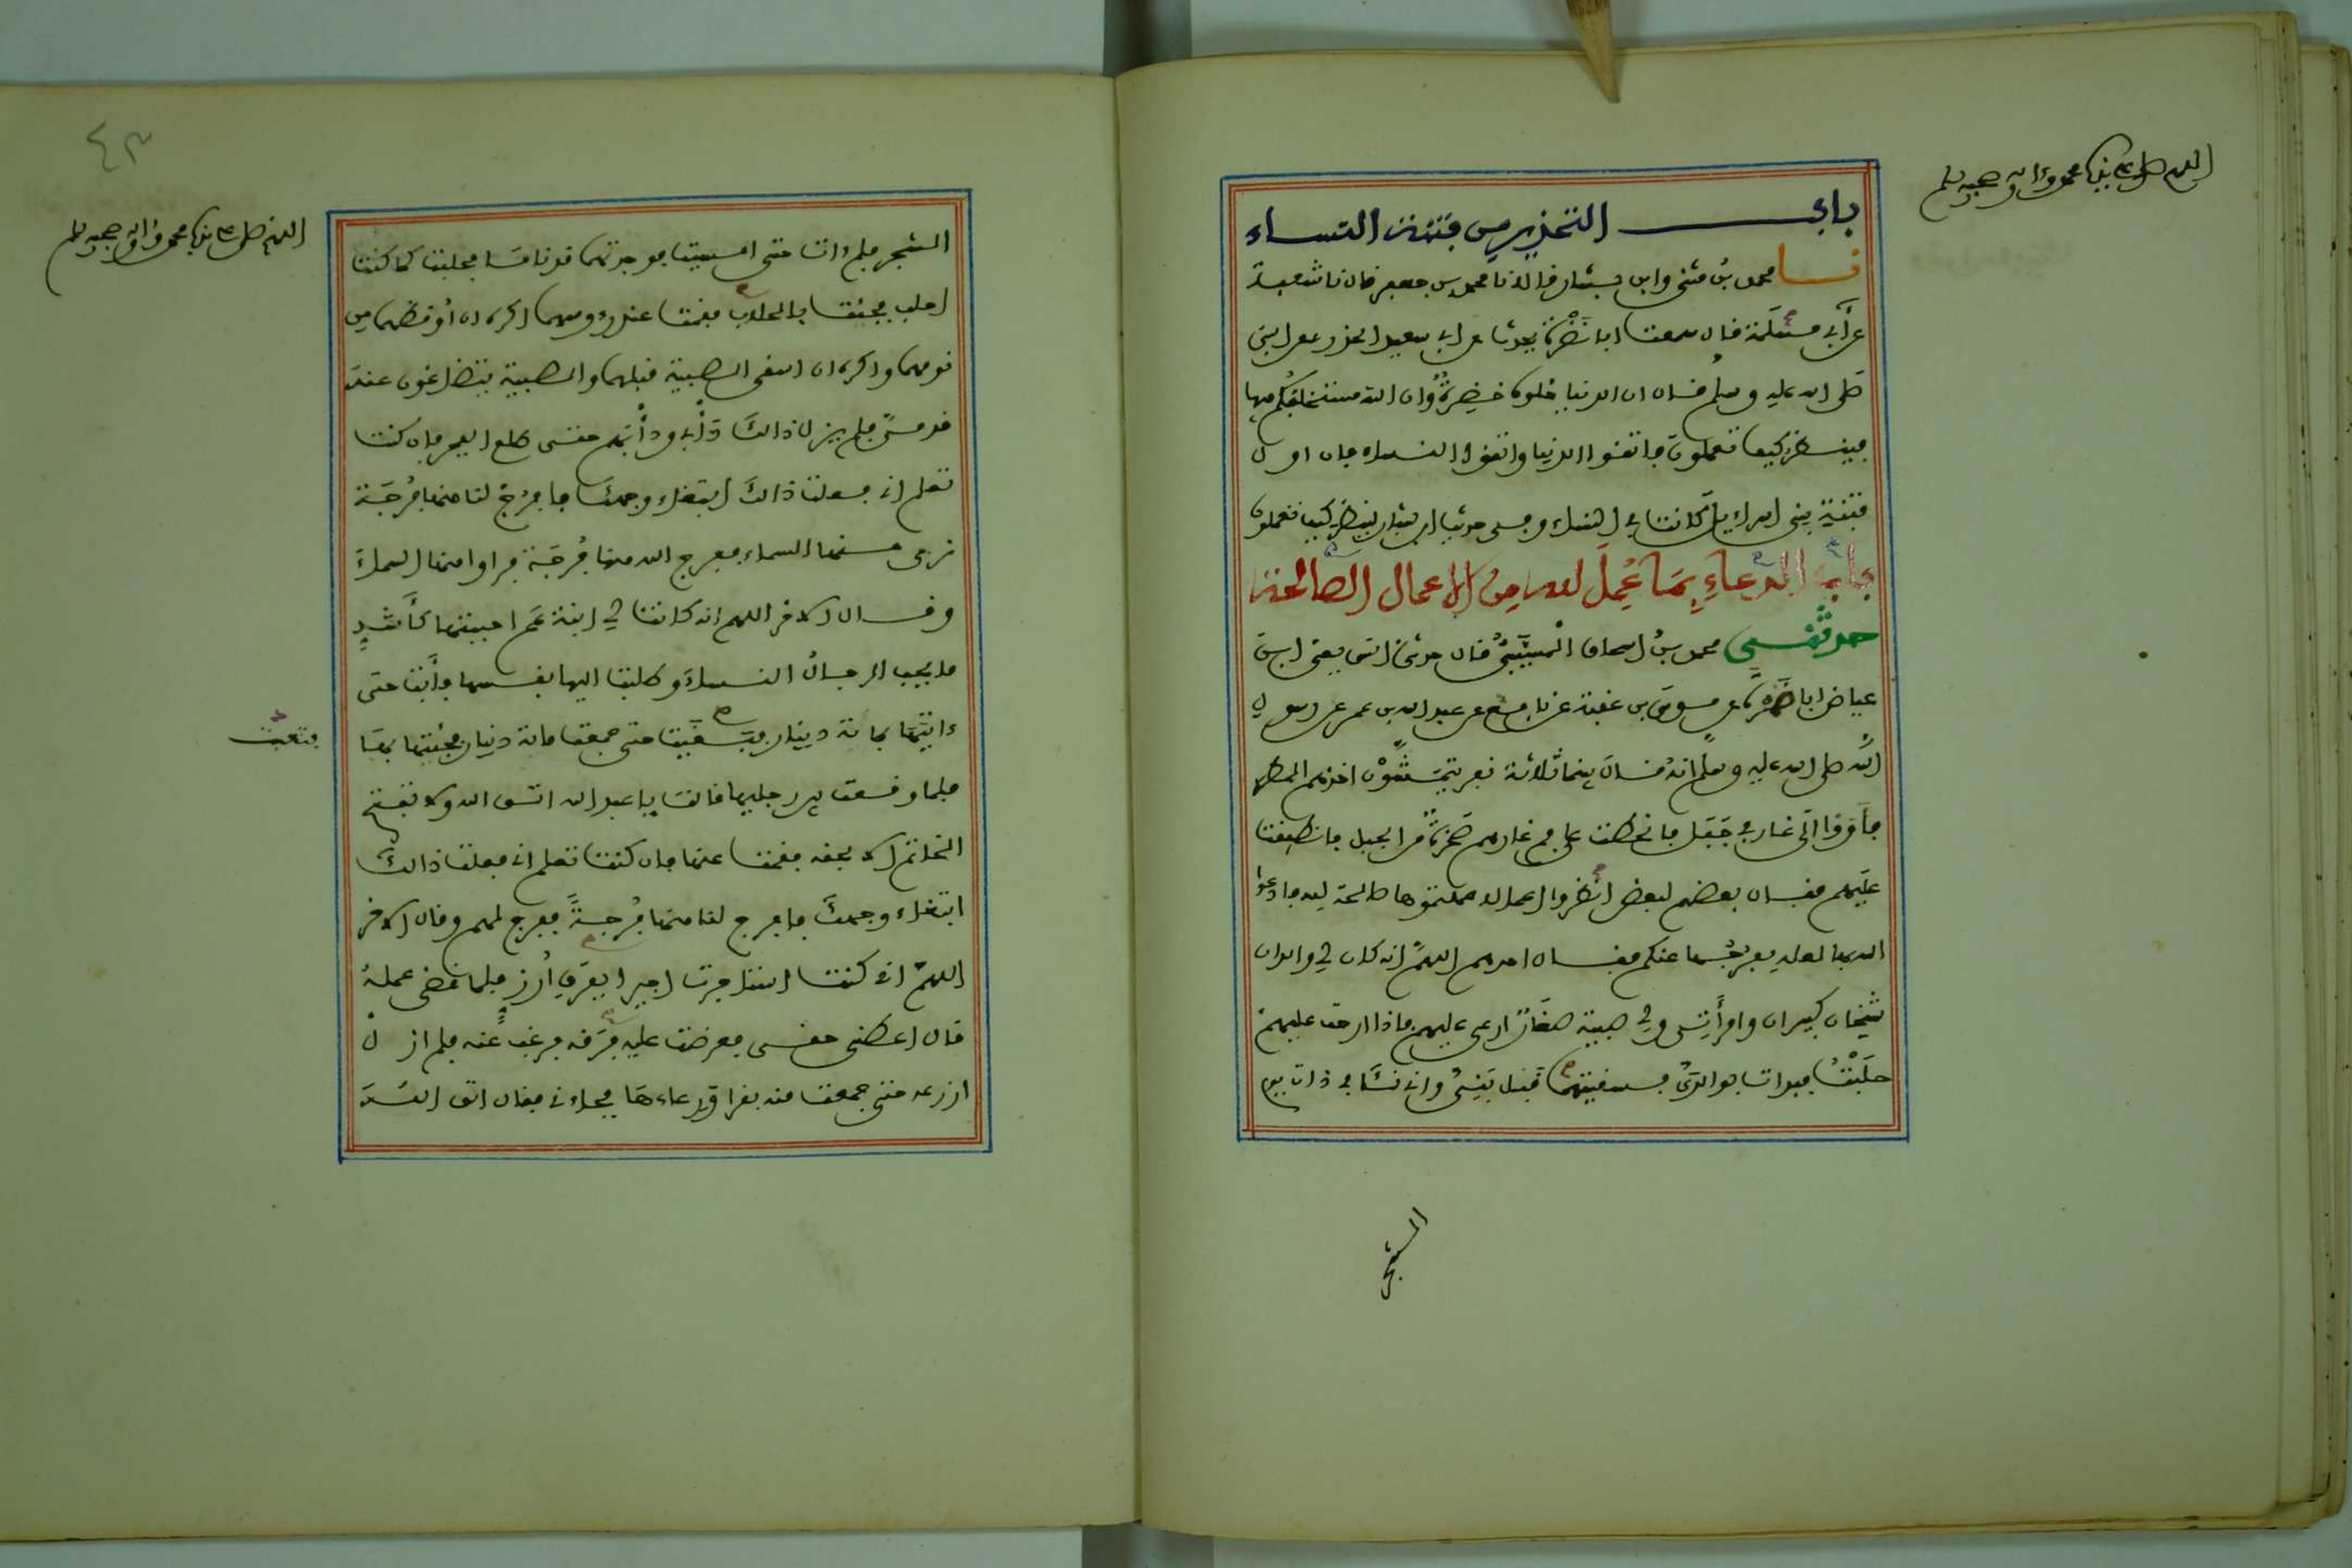 اللهم صل على نبينا محمد وءاله وصحبه وسلم
باب التحذير من فتنة النساء
نا محمد بن مثنى وابن بشار قالا نا محمد بن جعفر قال نا شعبة
عن أبي مسلمة قال سمعت ابا نضرة يحدث عن ابي سعيد الخدري عن النبي
صلى الله عليه وسلم قال ان الدنيا حلوة خضرة وان الله مستخلفكم فيها
فينظر كيف تعملون فاتقوا الدنيا واتقوا النساء فان اول
فتنة بني اسراءيل كانت في النساء وفي حديث ابن بشار لينظر كيف تعملون
باب الدعاء بما عمل لله من الاعمال الصالحة
حدثني محمد بن اسحاق المسيبي قال حدثني انس يعني ابن
عياض ابا ضمرة عن موسى بن عقبة عن نافع عن عبد الله بن عمر عن رسول
الله صلى الله عليه وسلم انه قال بينما ثلاثة نفر يتمشون اخذهم المطر
فأووا الى غار في جبل فانحطت على فم غارهم صخرة من الجبل فانطبقت
عليهم فقال بعضهم لبعض انظروا اعمالا عملتموها صالحة لله فادعوا
الله بها لعله يفرجها عنكم فقال احدهم اللهم انه كان لي والدان
شيخان كبيران وامرأتي ولي صبية صغار ارعى عليهم فاذا ارحت عليهم
حلبت فبدأت بوالدي فسقيتهما قبل بني وانه نأى بي ذات يوم
الشجر
٤٣
اللهم صل على نبينا محمد وءاله وصحبه وسلم
الشجر فلم ءات حتى امسيت فوجدتهما قد ناما فحلبت كما كنت
احلب فجئت بالحلاب فقمت عند رءوسهما اكره ان أوقظهما من
نومهما واكره ان اسقي الصبية قبلهما والصبية يتضاغون عند
قدمي فلم يزل ذالك دأبي ودأبهم حتى طلع الفجر فان كنت
تعلم اني فعلت ذالك ابتغاء وجهك فافرج لنا منها فرجة
نرى منها السماء ففرج الله منها فرجة فرأوا منها السماء
وقال الاخر اللهم انه كانت لي ابنة عم احببتها كأشد
ما يحب الرجال النساء وطلبت اليها نفسها فأبت حتى
ءاتيتها بمائة دينار فسقيت حتى جمعت مائة دينار فجئتها بها
فتعبت
فلما وقعت بين رجليها قالت يا عبد الله اتق الله ولا تفتح
الخاتم الا بحقه فقمت عنها فان كنت تعلم اني فعلت ذالك
ابتغاء وجهك فافرج لنا منها فرجة ففرج لهم وقال الاخر
اللهم اني كنت استاجرت اجيرا بفرق أرز فلما قضى عمله
قال اعطني حقي فعرضت عليه فرقه فرغب عنه فلم ازل
ازرعه حتى جمعت منه بقرا ورعاءها فجاءني فقال اتق الله